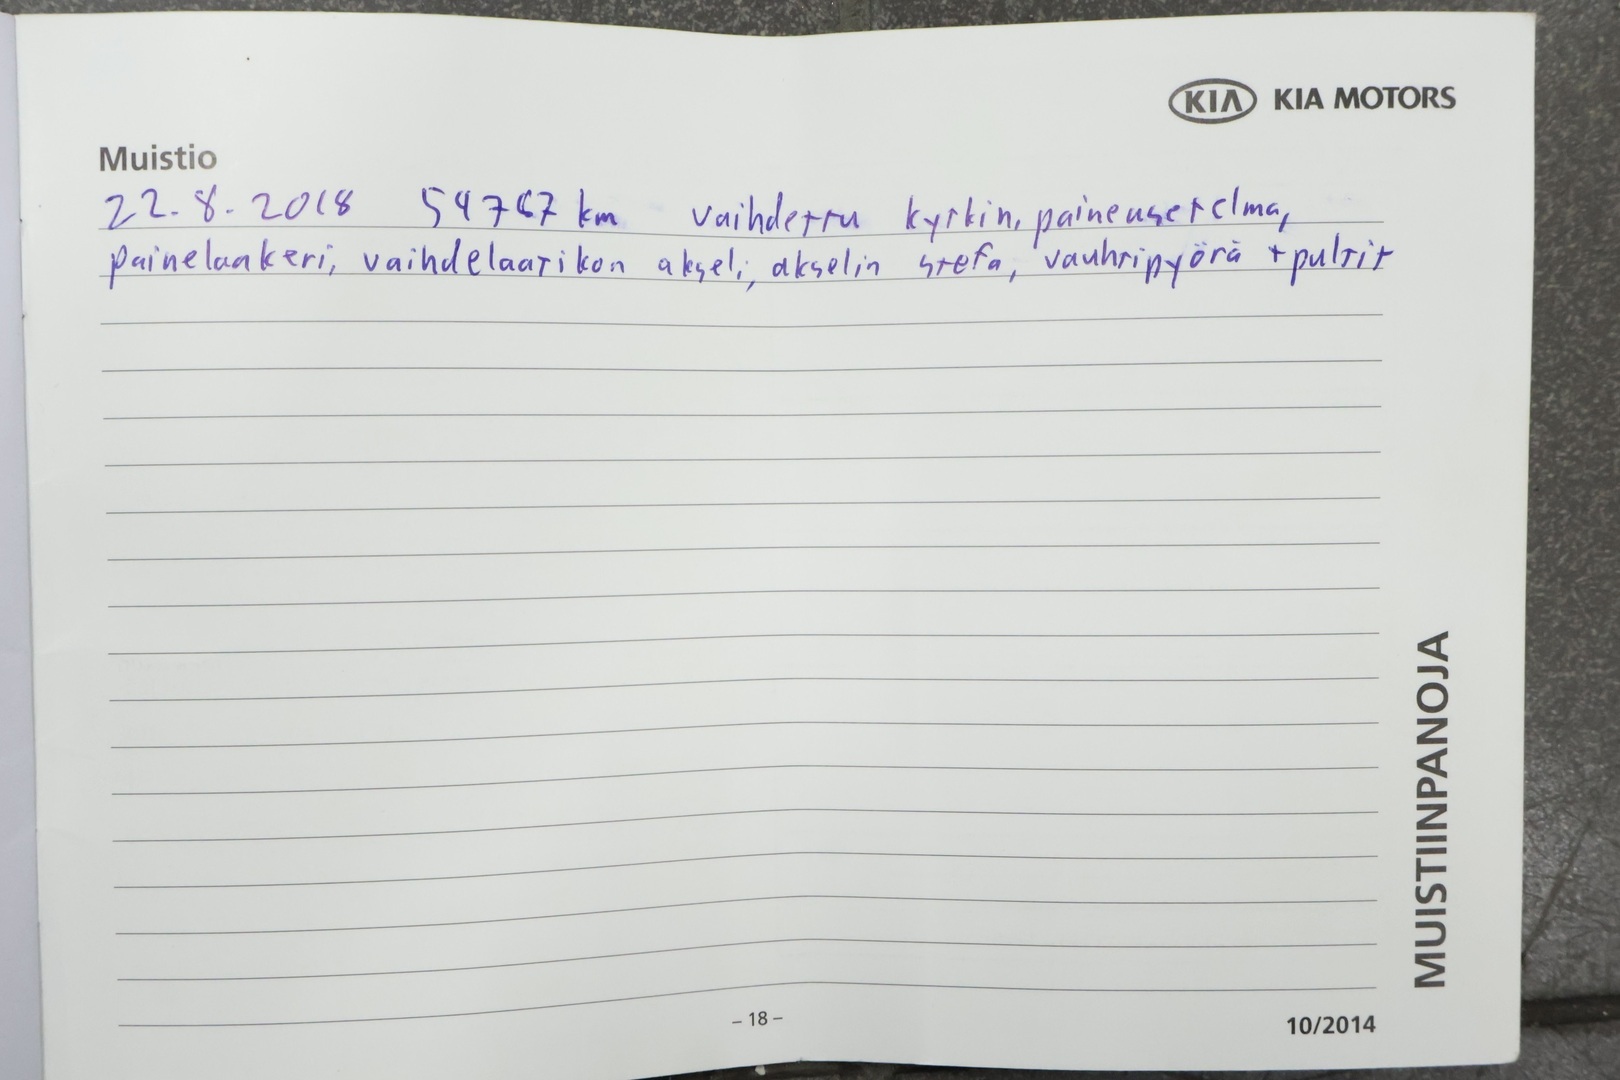 KIA KIA MOTORS
Muistio
22.8.2018 54767 km vaihdettu kytkin, paineasetelma,
painelaakeri, vaihdelaatikon akseli, akselin stefa, vauhtipyörä + pultit
MUISTIINPANOJA
– 18 –
10/2014